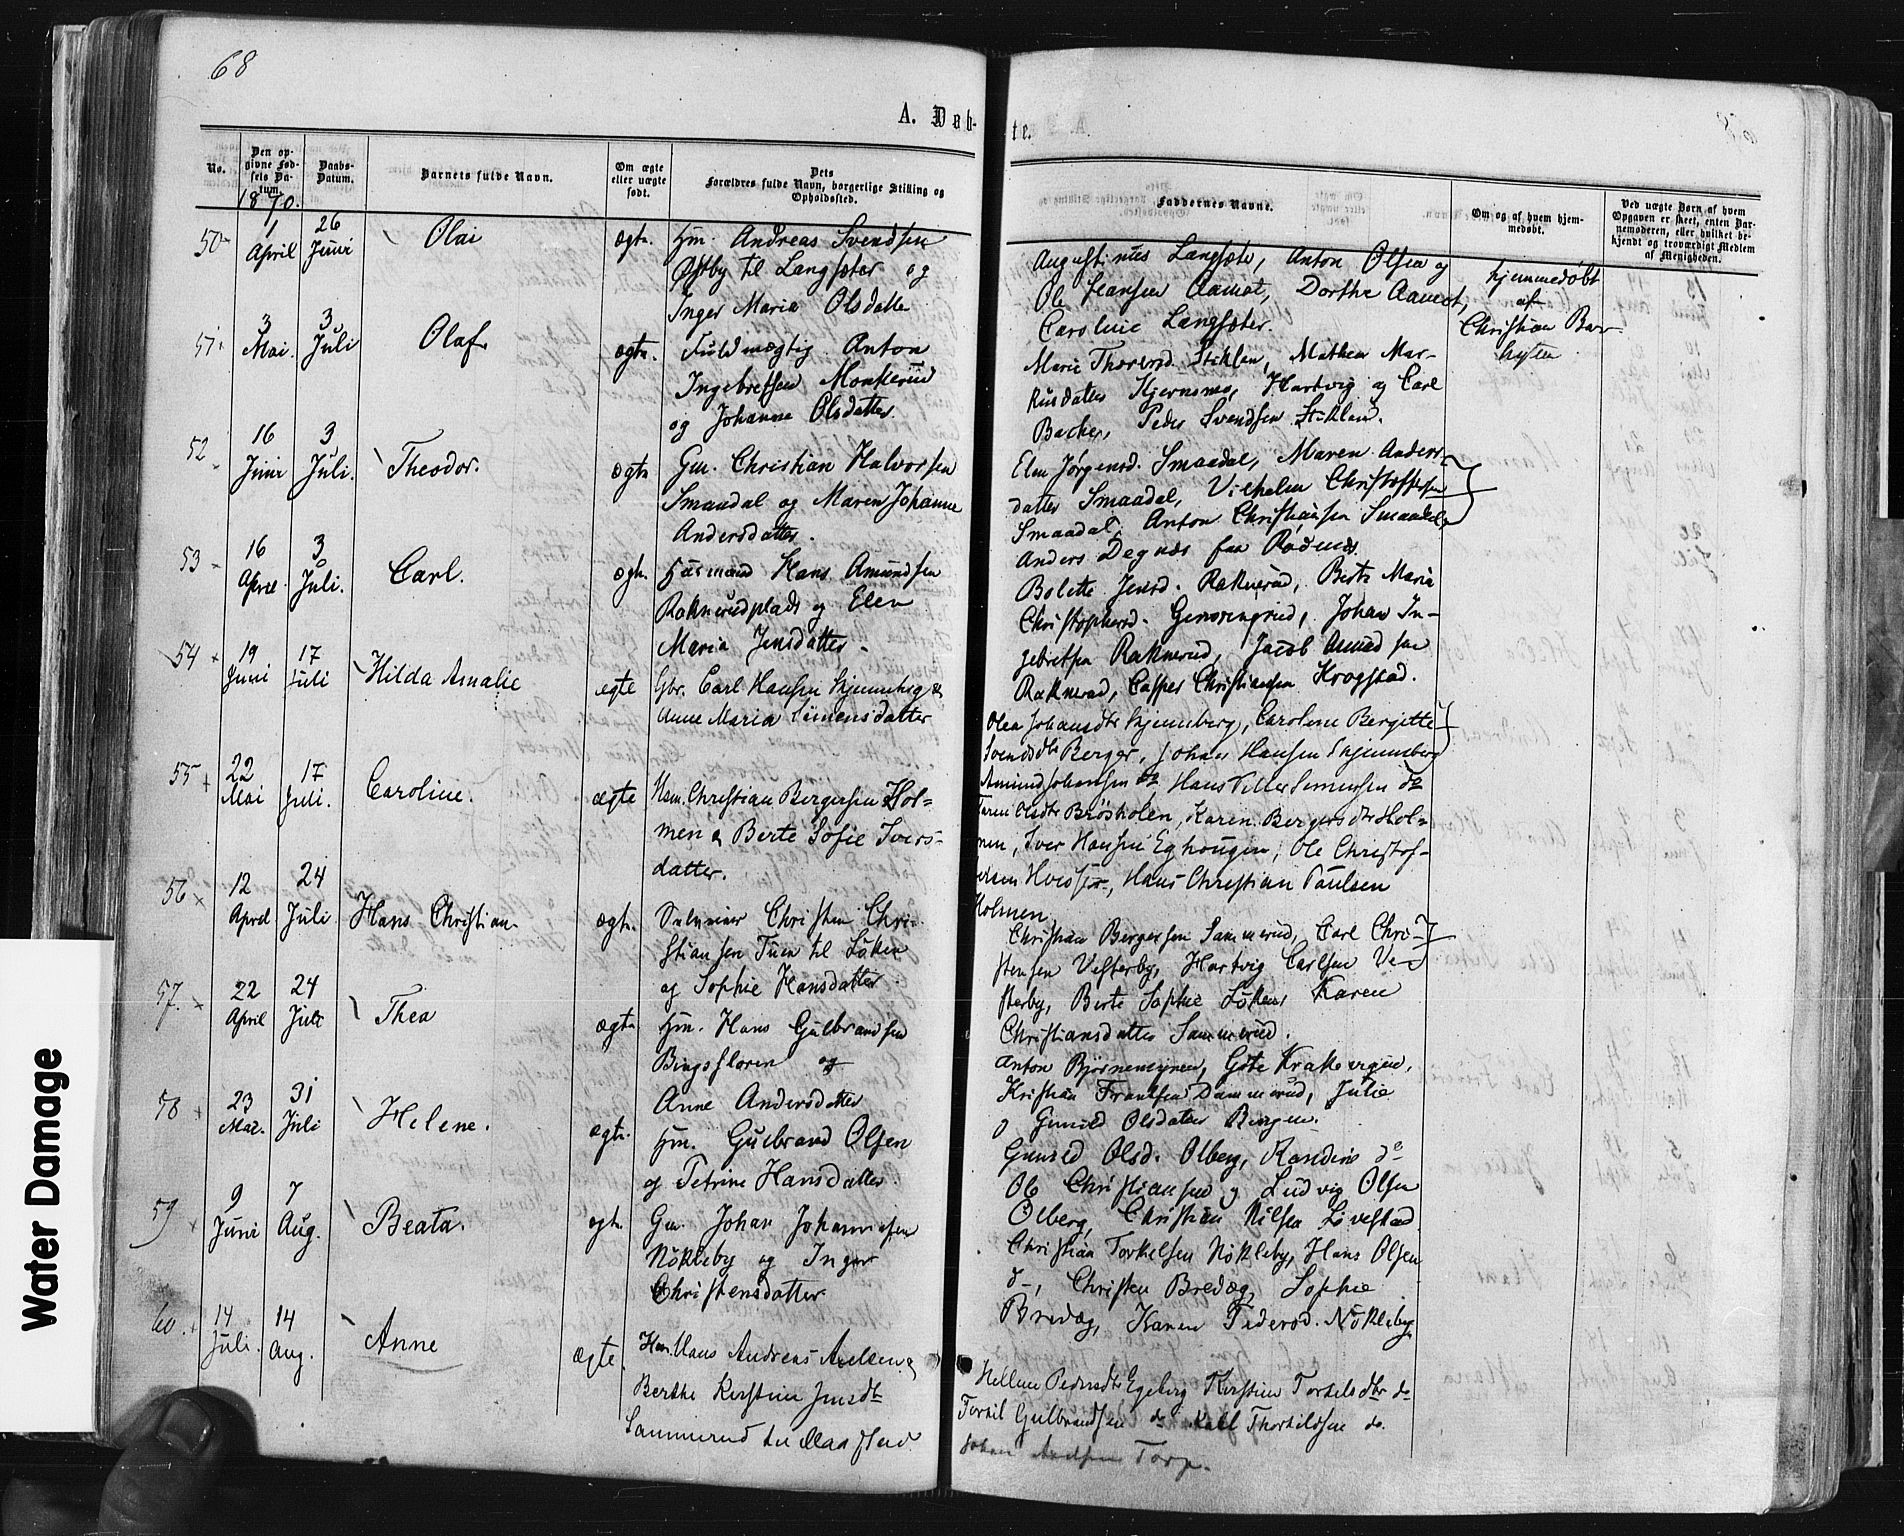 68
A. Døb-
te.
No.
Den op-
givne Fød-
sels Da-
tum.
Daabs-
Datum.
Barnets fulde Navn.
Om ægte
eller uægte
født.
Dets
Forældres fulde Navn, borgerlige Stilling og
Opholdssted.
Faddernes Navne.
Om og af hvem hjem-
medøbt.
Ved uægte Børn af hvem
Opgaven er skeet, enten Bar-
nemoderen, eller hvilket be-
kjendt og troværdigt Medlem
af Menigheden.
1870.
50 1 April 26 Juni Olai ægte. Hm. Andreas Svendsen
Østby til Langsæter og
Inger Maria Olsdatter
Augustinus Langsæter, Anton Olsen og
Ole Hansen Aamot, Dorthe Aamot,
Caroline Langsæter.
hjemmedøbt
af
Christian Bar-
51 3 Mai. 3 Juli Olaf ægte. Fuldmægtig Anton
Ingebretsen Monkerud
og Johanne Olsdatter.
Marie Thorersd. Stiklen, Mathea Mar-
kusdatter Kjernsmo, Hartvig og Carl
Backer, Peder Svendsen Stiklen.
52 16 Juni 3 Juli. Theodor. ægte Gm. Christian Halvorsen
Smaadal og Maren Johanne
Andersdatter.
Elen Jørgensd. Smaadal, Maren Anders-
datter Smaadal, Vilhelm Christoffersen
Smaadal, Anton Christiansen Smaadal,
Anders Degnæs fra Rødenæs.
53 16 April 3 Juli. Carl. ægte. Husmand Hans Amundsen
Raknerudplads og Elen
Maria Jensdatter.
Bolette Jensd. Raknerud, Berte Maria
Christophersd. Johan In-
gebretsen Raknerud, Jacob Amundsen
Raknerud, Casper Christiansen Krogstad.
54 19 Juni 17 Juli Hilda Amalie ægte Gbr. Carl Hansen Skjenneberg &
Anne Maria Simensdatter
Olea Johansdtr Skjenneberg, Caroline Bergitte
Svendsdtr Berger, Johan Hansen Skjenneberg
Amund Johansen do Hans Peller Simensen do
55 22 Mai 17 Juli. Caroline. ægte Hsm. Christian Bergersen Hol-
men & Berte Sofie Ivers-
datter.
Karen Olsdtr Brøsholen, Karen Bergersdtr Hol-
men, Iver Hansen Eghougen, Ole Christof-
Hans Christian Paulsen
Holmen
56 12 April 24 Juli Hans Christian. ægte. Christen Chri-
stiansen Tuen til Løken
og Sophie Hansdatter.
Christian Bergersen Sammerud, Carl Chri-
stensen Vesterby, Hartvig Carlsen Ve-
sterby, Berte Sophie Løken, Karen
Christiansdatter Sammerud.
57. 22 April 24 Juli Thea ægte Hm. Hans Gulbrandsen
Bingsfloren og
Anne Andersdatter
Anton Bjørnemyren, Gøte Krakevigen,
Kristian Frantsen Dammerud, Julie
og Gunild Olsdatter Bingen.
58 23 Mai. 31 Juli Helene. ægte. Hm. Gulbrand Olsen
og Petrine Hansdatter.
Gunild Olsd. Olberg, Randine do
Ole Christiansen og Ludvig Olsen
Olberg, Christian Nilsen Løvestad
59 9 Juni 7 Aug. Beata. ægte. Gm. Johan Johannesen
Nökleby og Inger
Christensdatter
Christian Torkelsen Nökleby, Hans Olsen
d-, Christen Bredæg, Sophie
Bredæg, Karen Pedersd. Nökleby.
60. 14 Juli. 14 Aug. Anne ægte. Hsm. Hans Andreas Axelsen &
Berthe Kirstine Jensdtr
Sammerud
Hellene Pedersdtr Egeberg Kirstine Torkelsdtr do
Torkil Gulbrandsen do Karl Thorkildsen do.
Johan Axelsen Torp.
Water Damage